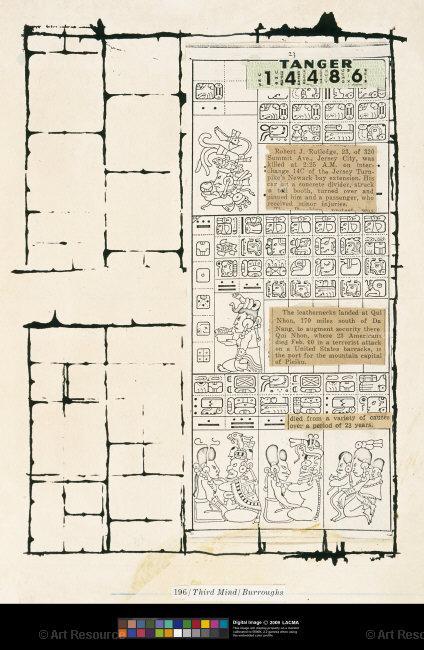 23
TANGER
14486
Robert J. Rutledge, 23, of 320
Summit Ave., Jersey City, was
killed at 2:25 A.M. on Inter-
change 14C of the Jersey Turn-
pike's Newark bay extension. His
car hit a concrete divider, struck
a toll booth, turned over and
pinned him and a passenger, who
received minor injuries.
The leathernecks landed at Qui
Nhon, 170 miles south of Da
Nang, to augment security there
Qui Nhon, where 23 Americans
died Feb. 10 in a terrorist attack
on a United States barracks, is
the port for the mountain capital
of Pleiku.
died from a variety of causes
over a period of 23 years.
196/Third Mind/Burroughs
© Art Resource
Digital Image © 2009 LACMA
© Art Resou